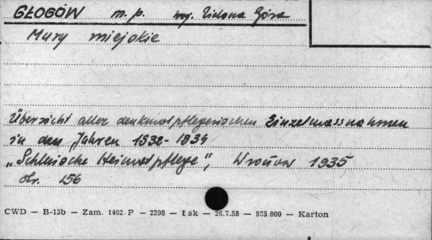 GŁOGÓW m. p. woj. Zielona Góra
Mury miejskie
Übersicht aller denkmalpflegerischen Einzelmassnahmen
in den Jahren 1832-1834
„Schlesische Heimatpflege", Wrocław 1935
str. 156
CWD — B-15b — Zam. 1402 P — 2398 — Łak — 26.7.58 — 935.000 — Karton